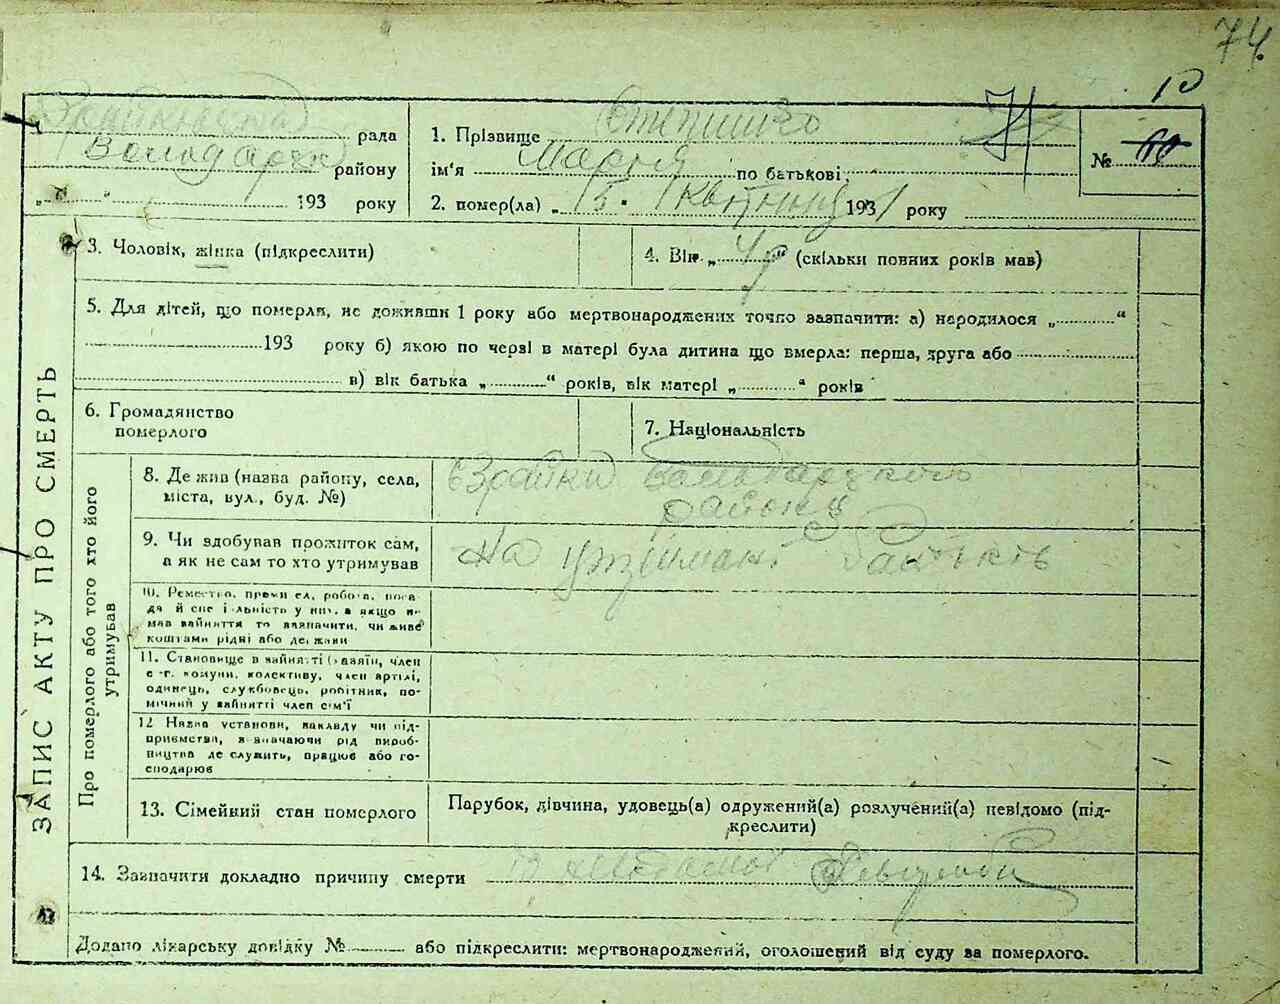 74.
10
рада
Володарка району
„ “ 193 року
1. Прізвище
ім'я Мария по батькові
2. помер(ла) „ 15 “ Квітня 193 року
№ 60
ЗАПИС АКТУ ПРО СМЕРТЬ
3. Чоловік, жінка (підкреслити)
4. Вік „ 4р “ (скільки повних років мав)
5. Для дітей, що померли, не доживши 1 року або мертвонароджених точно зазначити: а) народилося „ “
193 року б) якою по черзі в матері була дитина що вмерла: перша, друга або
в) вік батька „ “ років, вік матері „ “ років
6. Громадянство
померлого
7. Національність
Про померлого або того хто його
утримував
8. Де жив (назва району, села,
міста, вул., буд. №)
Володарского
района
9. Чи здобував прожиток сам,
а як не сам то хто утримував
На утримані батьків
10. Ремество, промисел, робота, поса-
да й спеціяльність у них, а якщо не
мав зайняття то зазначити, чи живе
коштами рідні або держави
11. Становище в зайнятті (хазяїн, член
с.-г. комуни, колективу, член артілі,
одинець, службовець, робітник, по-
мічний у зайнятті член сім'ї
12 Назва установи, закладу чи під-
приємства, зазначаючи рід вироб-
ництва де служить, працює або го-
сподарює
13. Сімейний стан померлого
Парубок, дівчина, удовець(а) одружений(а) розлучений(а) невідомо (під-
креслити)
14. Зазначити докладно причину смерти
Додано лікарську довідку № або підкреслити: мертвонароджений, оголошений від суду за померлого.